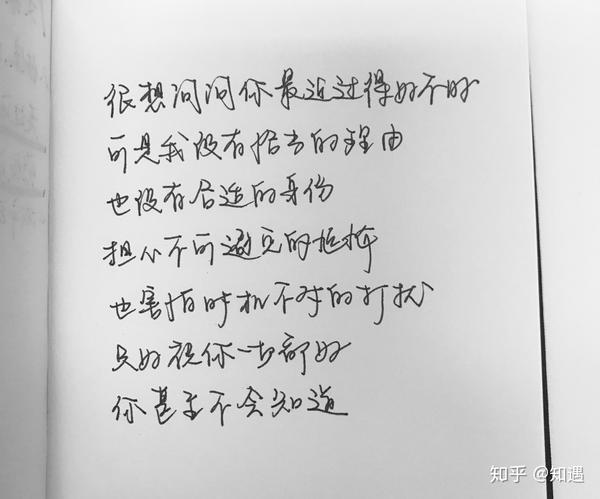 很想问问你最近过得好不好
可是我没有恰当的理由
也没有合适的身份
担心不可避免的尴尬
也害怕时机不对的打扰
只好祝你一切都好
你甚至不会知道
知乎 @知遇